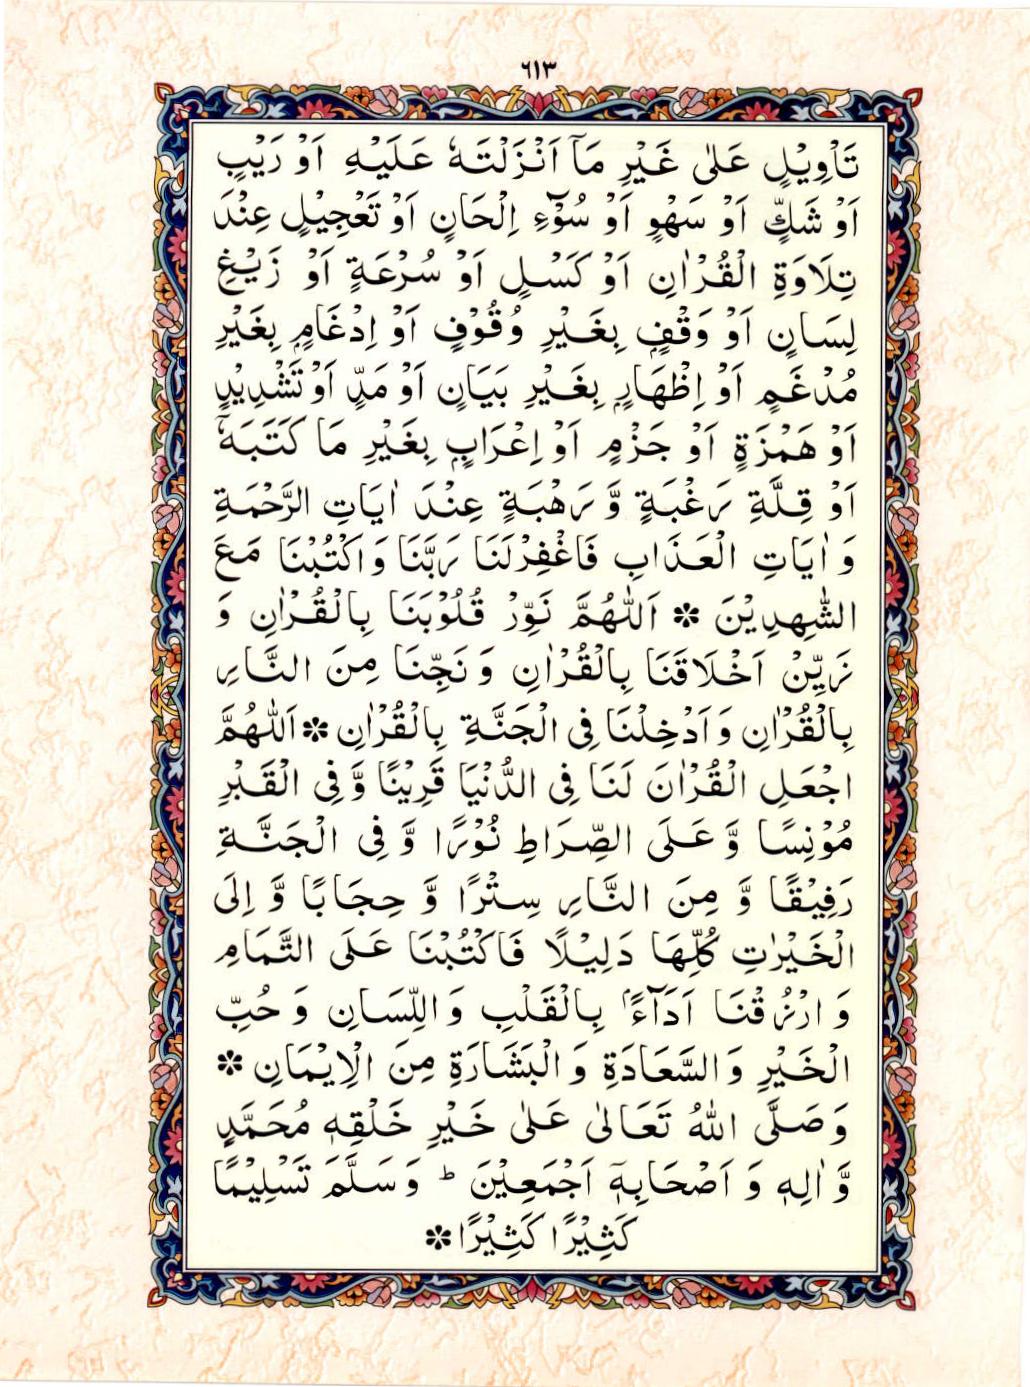 ٦١٣
تَاْوِيْلٍ عَلٰى غَيْرِ مَآ اَنْزَلْتَهٗ عَلَيْهِ اَوْ رَيْبٍ
اَوْ شَكٍّ اَوْ سَهْوٍ اَوْ سُوْٓءِ اِلْحَانٍ اَوْ تَعْجِيْلٍ عِنْدَ
تِلَاوَةِ الْقُرْاٰنِ اَوْ كَسَلٍ اَوْ سُرْعَةٍ اَوْ زَيْغِ
لِسَانٍ اَوْ وَقْفٍ بِغَيْرِ وُقُوْفٍ اَوْ اِدْغَامٍ بِغَيْرِ
مُدْغَمٍ اَوْ اِظْهَارٍ بِغَيْرِ بَيَانٍ اَوْ مَدٍّ اَوْ تَشْدِيْدٍ
اَوْ هَمْزَةٍ اَوْ جَزْمٍ اَوْ اِعْرَابٍ بِغَيْرِ مَا كَتَبَهٗ
اَوْ قِلَّةِ رَغْبَةٍ وَّ رَهْبَةٍ عِنْدَ اٰيَاتِ الرَّحْمَةِ
وَ اٰيَاتِ الْعَذَابِ فَاغْفِرْلَنَا رَبَّنَا وَاكْتُبْنَا مَعَ
الشّٰهِدِيْنَ ✽ اَللّٰهُمَّ نَوِّرْ قُلُوْبَنَا بِالْقُرْاٰنِ وَ
زَيِّنْ اَخْلَاقَنَا بِالْقُرْاٰنِ وَ نَجِّنَا مِنَ النَّارِ
بِالْقُرْاٰنِ وَ اَدْخِلْنَا فِى الْجَنَّةِ بِالْقُرْاٰنِ ✽ اَللّٰهُمَّ
اجْعَلِ الْقُرْاٰنَ لَنَا فِى الدُّنْيَا قَرِيْنًا وَّ فِى الْقَبْرِ
مُوْنِسًا وَّ عَلَى الصِّرَاطِ نُوْرًا وَّ فِى الْجَنَّةِ
رَفِيْقًا وَّ مِنَ النَّارِ سِتْرًا وَّ حِجَابًا وَّ اِلَى
الْخَيْرٰتِ كُلِّهَا دَلِيْلًا فَاكْتُبْنَا عَلَى التَّمَامِ
وَ ارْزُقْنَا اَدَآءًۢ بِالْقَلْبِ وَ اللِّسَانِ وَ حُبِّ
الْخَيْرِ وَ السَّعَادَةِ وَ الْبَشَارَةِ مِنَ الْاِيْمَانِ ✽
وَ صَلَّى اللّٰهُ تَعَالٰى عَلٰى خَيْرِ خَلْقِهٖ مُحَمَّدٍ
وَّ اٰلِهٖ وَ اَصْحَابِهٖٓ اَجْمَعِيْنَ ؕ وَ سَلَّمَ تَسْلِيْمًا
كَثِيْرًا كَثِيْرًا ✽